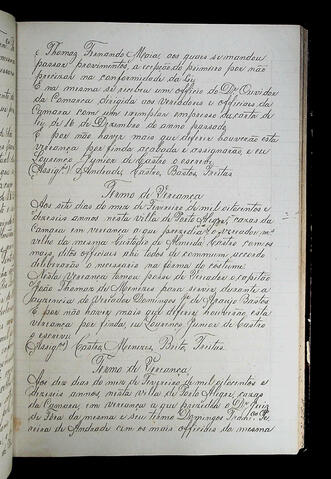 e Thomaz Fernando Maia, aos quaes se mandou
passar provimentos, a excepção do primeiro por não
precisar na conformidade da Ley
E na mesma se recebeu um officio do Dr. Ouvidor
da Comarca dirigida aos vereadores e officiaes da
Camara com um exemplar impresso da carta de
ley de 16 de Dezembro do anno passado
E por não haver mais que deferir houverão esta
vereança por finda acabada e assignarão, e eu
Lourenço Junior de Castro o escrevi
(Assign.) Andrade, Castro, Bastos, Freitas
Termo de Vereança
Aos sete dias do mez de Fevereiro de mil oitocentos e
deseseis annos nesta villa de Porto Alegre, cazas da
Camara em vereança a que prezidia o vereador m.
velho da mesma Custodio de Almeida Castro com os
mais ditos officiaes pho todos de commum accordo
deliberarão o necessario na forma do costume.
Nesta Vereança tomou posse de Vereador o capitão
João Thomaz de Menezes para servir durante a
auzencia do Vereador Domingos de Araujo Bastos
E por não haver mais que deferir houverão, esta
vereança por finda, eu Lourenço Junior de Castro
o escrevi
(Assign.) Castro, Menezes, Brito, Freitas
Termo de Vereança
Aos dez dias do mez de Fevereiro de mil oitocentos e
deseseis annos, nesta villa de Porto Alegre, cazas
da Camara, em vereança a que prezidia o Dr. Juiz
de Fora da mesma e seu termo Domingos Fran.co Pe
reira de Andrade com os mais officiaes da mesma